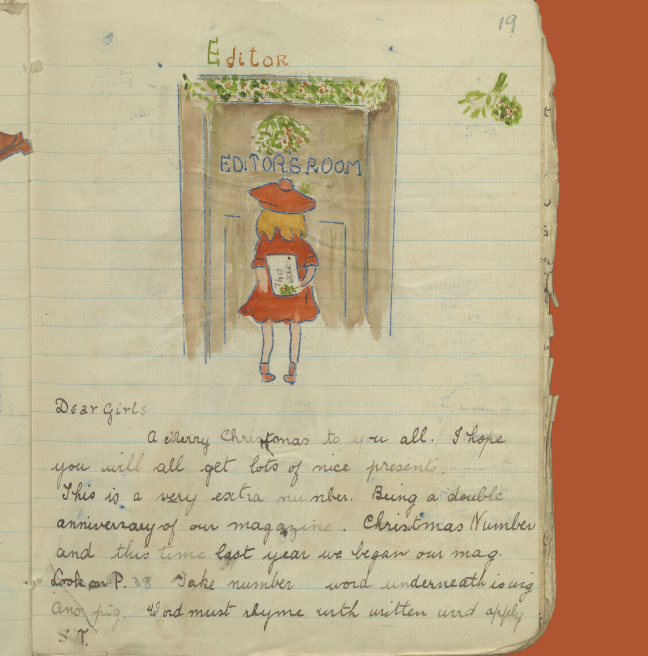 19
Editor
EDITORS ROOM
The
Dear Girls
A Merry Christmas to you all. I hope
you will all get lots of nice presents.
This is a very extra number. Being a double
anniversary of our magazine. Christmas Number
and this time last year we began our mag.
Look on P. 38 Take number word underneath is wig
and pig. Word must rhyme with written word apply
S.T.